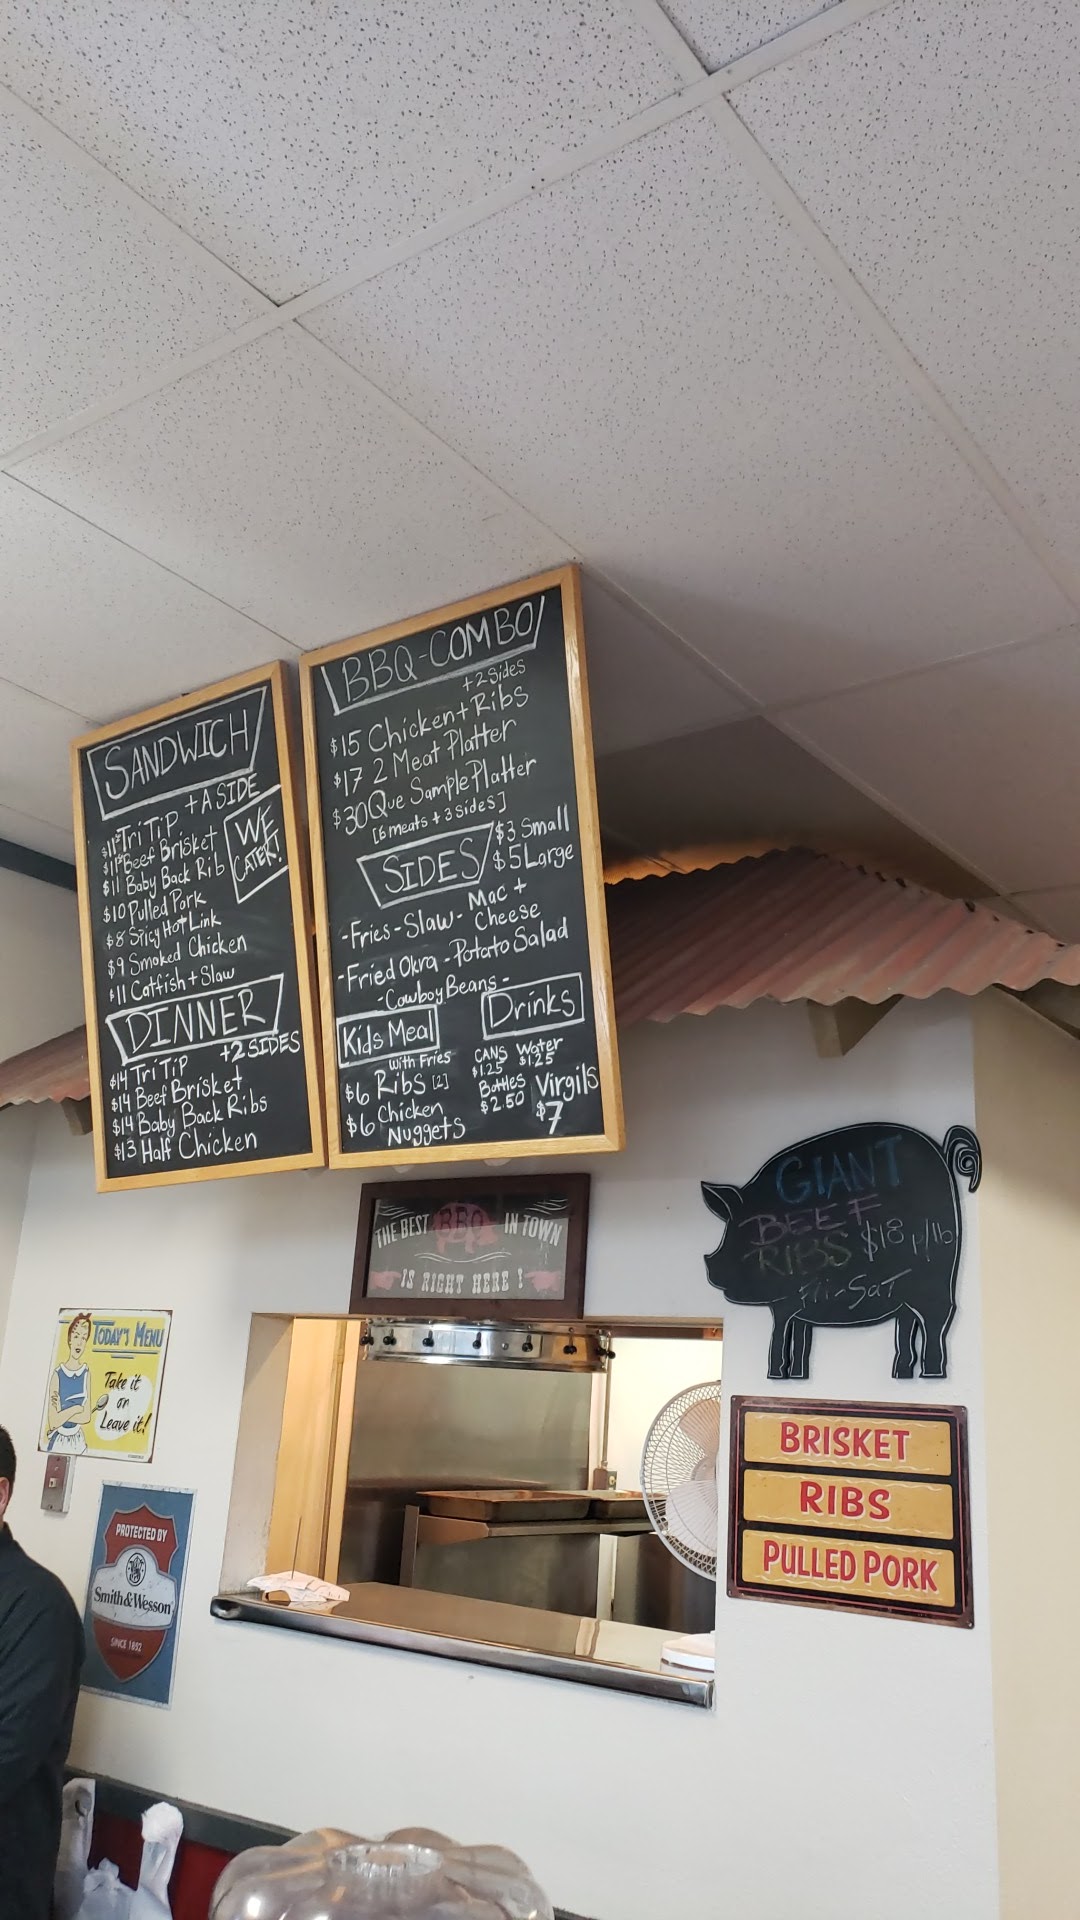 SANDWICH
+ A SIDE
$11 Tri Tip
$11 Beef Brisket
$11 Baby Back Rib
$10 Pulled Pork
$8 Spicy Hot Link
$9 Smoked Chicken
$11 Catfish + Slaw
WE
CATER!
DINNER
+2 SIDES
$14 Tri Tip
$14 Beef Brisket
$14 Baby Back Ribs
$13 Half Chicken
BBQ-COMBO
+2 Sides
$15 Chicken + Ribs
$17 2 Meat Platter
$30 Que Sample Platter
[6 meats + 3 sides]
SIDES
$3 Small
$5 Large
-Fries-Slaw- Mac +
Cheese
-Fried Okra -Potato Salad
-Cowboy Beans-
Kids Meal
with Fries
$6 Ribs [2]
$6 Chicken
Nuggets
Drinks
CANS Water
$1.25 $1.25
Bottles
$2.50
Virgils
$7
THE BEST BBQ IN TOWN
IS RIGHT HERE!
GIANT
BEEF
RIBS $18 p/lb
Fri-Sat
TODAY'S MENU
Take it
or
Leave it!
PROTECTED BY
Smith & Wesson
SINCE 1852
BRISKET
RIBS
PULLED PORK